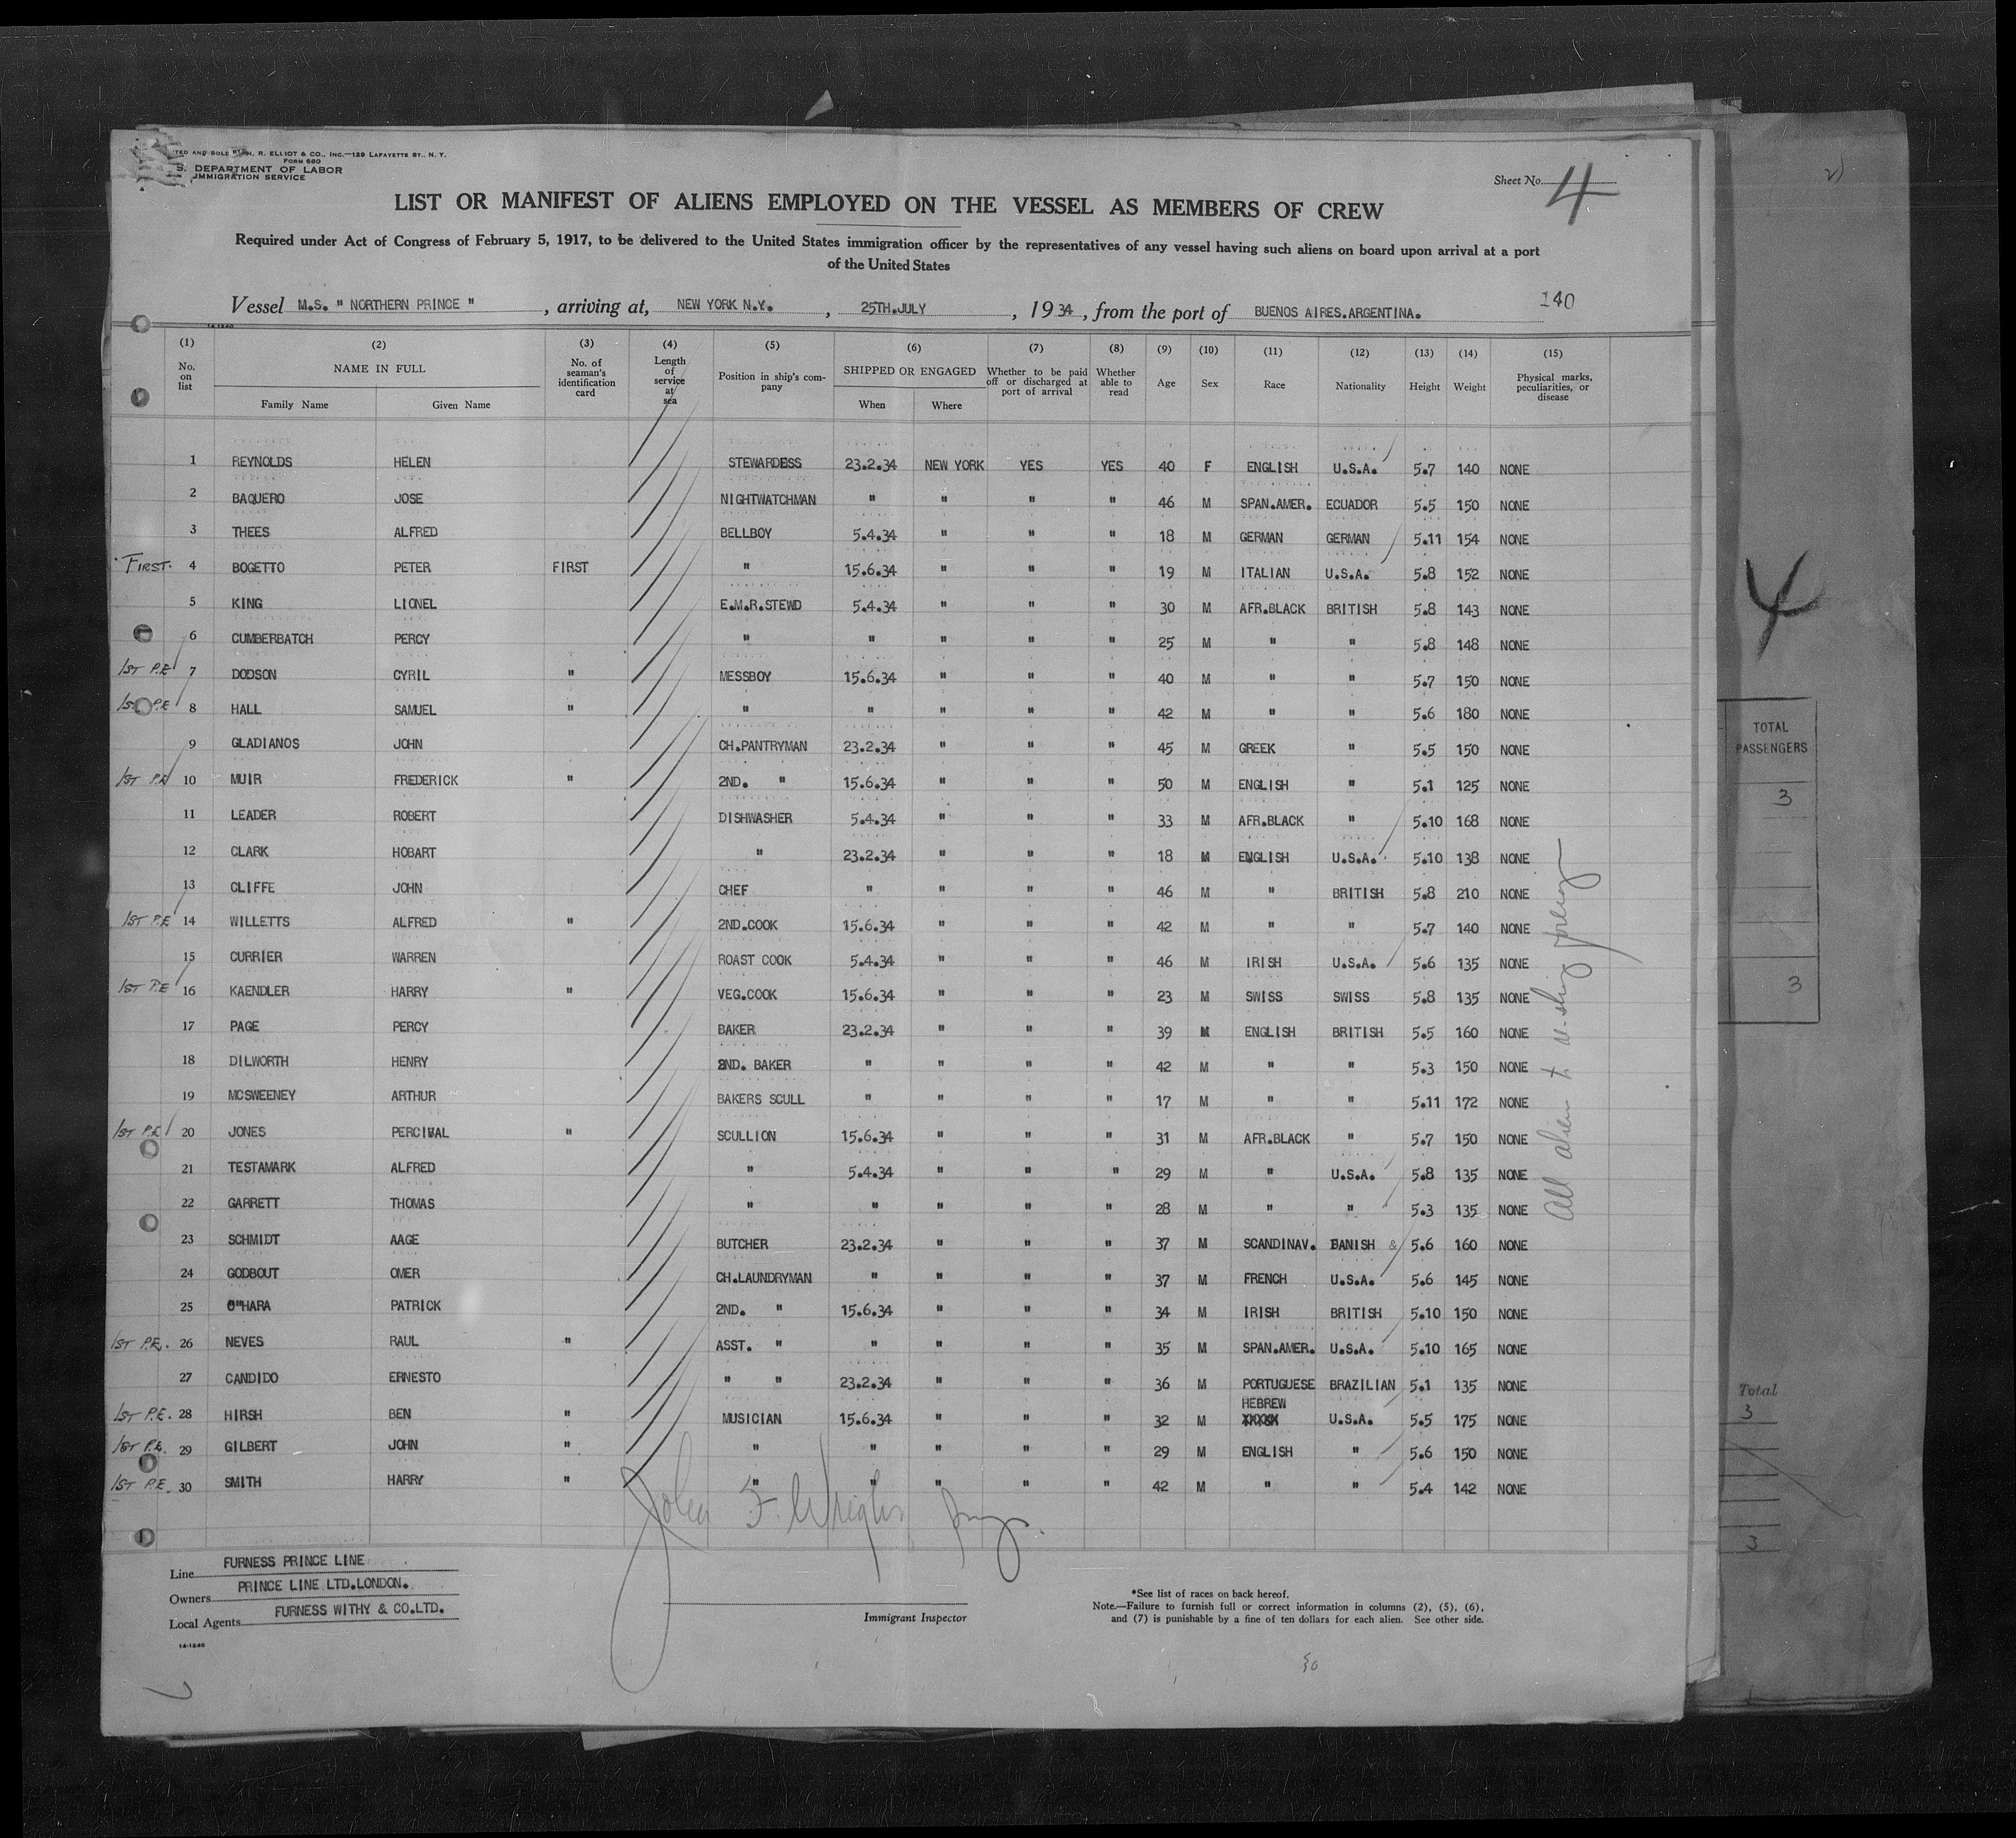 TED AND SOLD BY H. R. ELLIOT & CO., INC.—129 LAFAYETTE ST., N. Y.
FORM 680
S. DEPARTMENT OF LABOR
IMMIGRATION SERVICE
Sheet No. 4
LIST OR MANIFEST OF ALIENS EMPLOYED ON THE VESSEL AS MEMBERS OF CREW
Required under Act of Congress of February 5, 1917, to be delivered to the United States immigration officer by the representatives of any vessel having such aliens on board upon arrival at a port
of the United States
Vessel M.S. " NORTHERN PRINCE " , arriving at, NEW YORK N.Y. , 25TH.JULY , 1934 , from the port of BUENOS AIRES.ARGENTINA. 140
14-1240
(1) (2) (3) (4) (5) (6) (7) (8) (9) (10) (11) (12) (13) (14) (15)
No. on list NAME IN FULL Family Name Given Name No. of seaman's identification card Length of service at sea Position in ship's company SHIPPED OR ENGAGED When Where Whether to be paid off or discharged at port of arrival Whether able to read Age Sex Race Nationality Height Weight Physical marks, peculiarities, or disease
1 REYNOLDS HELEN STEWARDESS 23.2.34 NEW YORK YES YES 40 F ENGLISH U.S.A. 5.7 140 NONE
2 BAQUERO JOSE NIGHTWATCHMAN " " " " 46 M SPAN.AMER. ECUADOR 5.5 150 NONE
3 THEES ALFRED BELLBOY 5.4.34 " " " 18 M GERMAN GERMAN 5.11 154 NONE
FIRST. 4 BOGETTO PETER FIRST " 15.6.34 " " " 19 M ITALIAN U.S.A. 5.8 152 NONE
5 KING LIONEL E.M.R.STEWD 5.4.34 " " " 30 M AFR.BLACK BRITISH 5.8 143 NONE
6 CUMBERBATCH PERCY " " " " " 25 M " " 5.8 148 NONE
1ST P.E 7 DODSON CYRIL " MESSBOY 15.6.34 " " " 40 M " " 5.7 150 NONE
1ST P.E 8 HALL SAMUEL " " " " " " 42 M " " 5.6 180 NONE
9 GLADIANOS JOHN CH.PANTRYMAN 23.2.34 " " " 45 M GREEK " 5.5 150 NONE
1ST P.E 10 MUIR FREDERICK " 2ND. " 15.6.34 " " " 50 M ENGLISH " 5.1 125 NONE
11 LEADER ROBERT DISHWASHER 5.4.34 " " " 33 M AFR.BLACK " 5.10 168 NONE
12 CLARK HOBART " 23.2.34 " " " 18 M ENGLISH U.S.A. 5.10 138 NONE
13 CLIFFE JOHN CHEF " " " " 46 M " BRITISH 5.8 210 NONE
1ST P.E 14 WILLETTS ALFRED " 2ND.COOK 15.6.34 " " " 42 M " " 5.7 140 NONE
15 CURRIER WARREN ROAST COOK 5.4.34 " " " 46 M IRISH U.S.A. 5.6 135 NONE
1ST P.E 16 KAENDLER HARRY " VEG.COOK 15.6.34 " " " 23 M SWISS SWISS 5.8 135 NONE
17 PAGE PERCY BAKER 23.2.34 " " " 39 M ENGLISH BRITISH 5.5 160 NONE
18 DILWORTH HENRY 2ND. BAKER " " " " 42 M " " 5.3 150 NONE
19 MCSWEENEY ARTHUR BAKERS SCULL " " " " 17 M " " 5.11 172 NONE
1ST P.E 20 JONES PERCIVAL " SCULLION 15.6.34 " " " 31 M AFR.BLACK " 5.7 150 NONE
21 TESTAMARK ALFRED " 5.4.34 " " " 29 M " U.S.A. 5.8 135 NONE
22 GARRETT THOMAS " " " " " 28 M " " 5.3 135 NONE
23 SCHMIDT AAGE BUTCHER 23.2.34 " " " 37 M SCANDINAV. DANISH & 5.6 160 NONE
24 GODBOUT OMER CH.LAUNDRYMAN " " " " 37 M FRENCH U.S.A. 5.6 145 NONE
25 O"HARA PATRICK 2ND. " 15.6.34 " " " 34 M IRISH BRITISH 5.10 150 NONE
1ST P.E. 26 NEVES RAUL " ASST. " " " " " 35 M SPAN.AMER. U.S.A. 5.10 165 NONE
27 CANDIDO ERNESTO " " 23.2.34 " " " 36 M PORTUGUESE BRAZILIAN 5.1 135 NONE
HEBREW
1ST P.E. 28 HIRSH BEN " MUSICIAN 15.6.34 " " " 32 M XXXXX U.S.A. 5.5 175 NONE
1ST P.E. 29 GILBERT JOHN " " " " " " 29 M ENGLISH " 5.6 150 NONE
1ST P.E. 30 SMITH HARRY " " " " " " 42 M " " 5.4 142 NONE
John F. Wright
Line FURNESS PRINCE LINE
Owners PRINCE LINE LTD.LONDON.
Local Agents FURNESS WITHY & CO.LTD.
14-1240
Immigrant Inspector
*See list of races on back hereof.
Note.—Failure to furnish full or correct information in columns (2), (5), (6),
and (7) is punishable by a fine of ten dollars for each alien. See other side.
30
All alien
4
TOTAL
PASSENGERS
3
3
Total
3
3